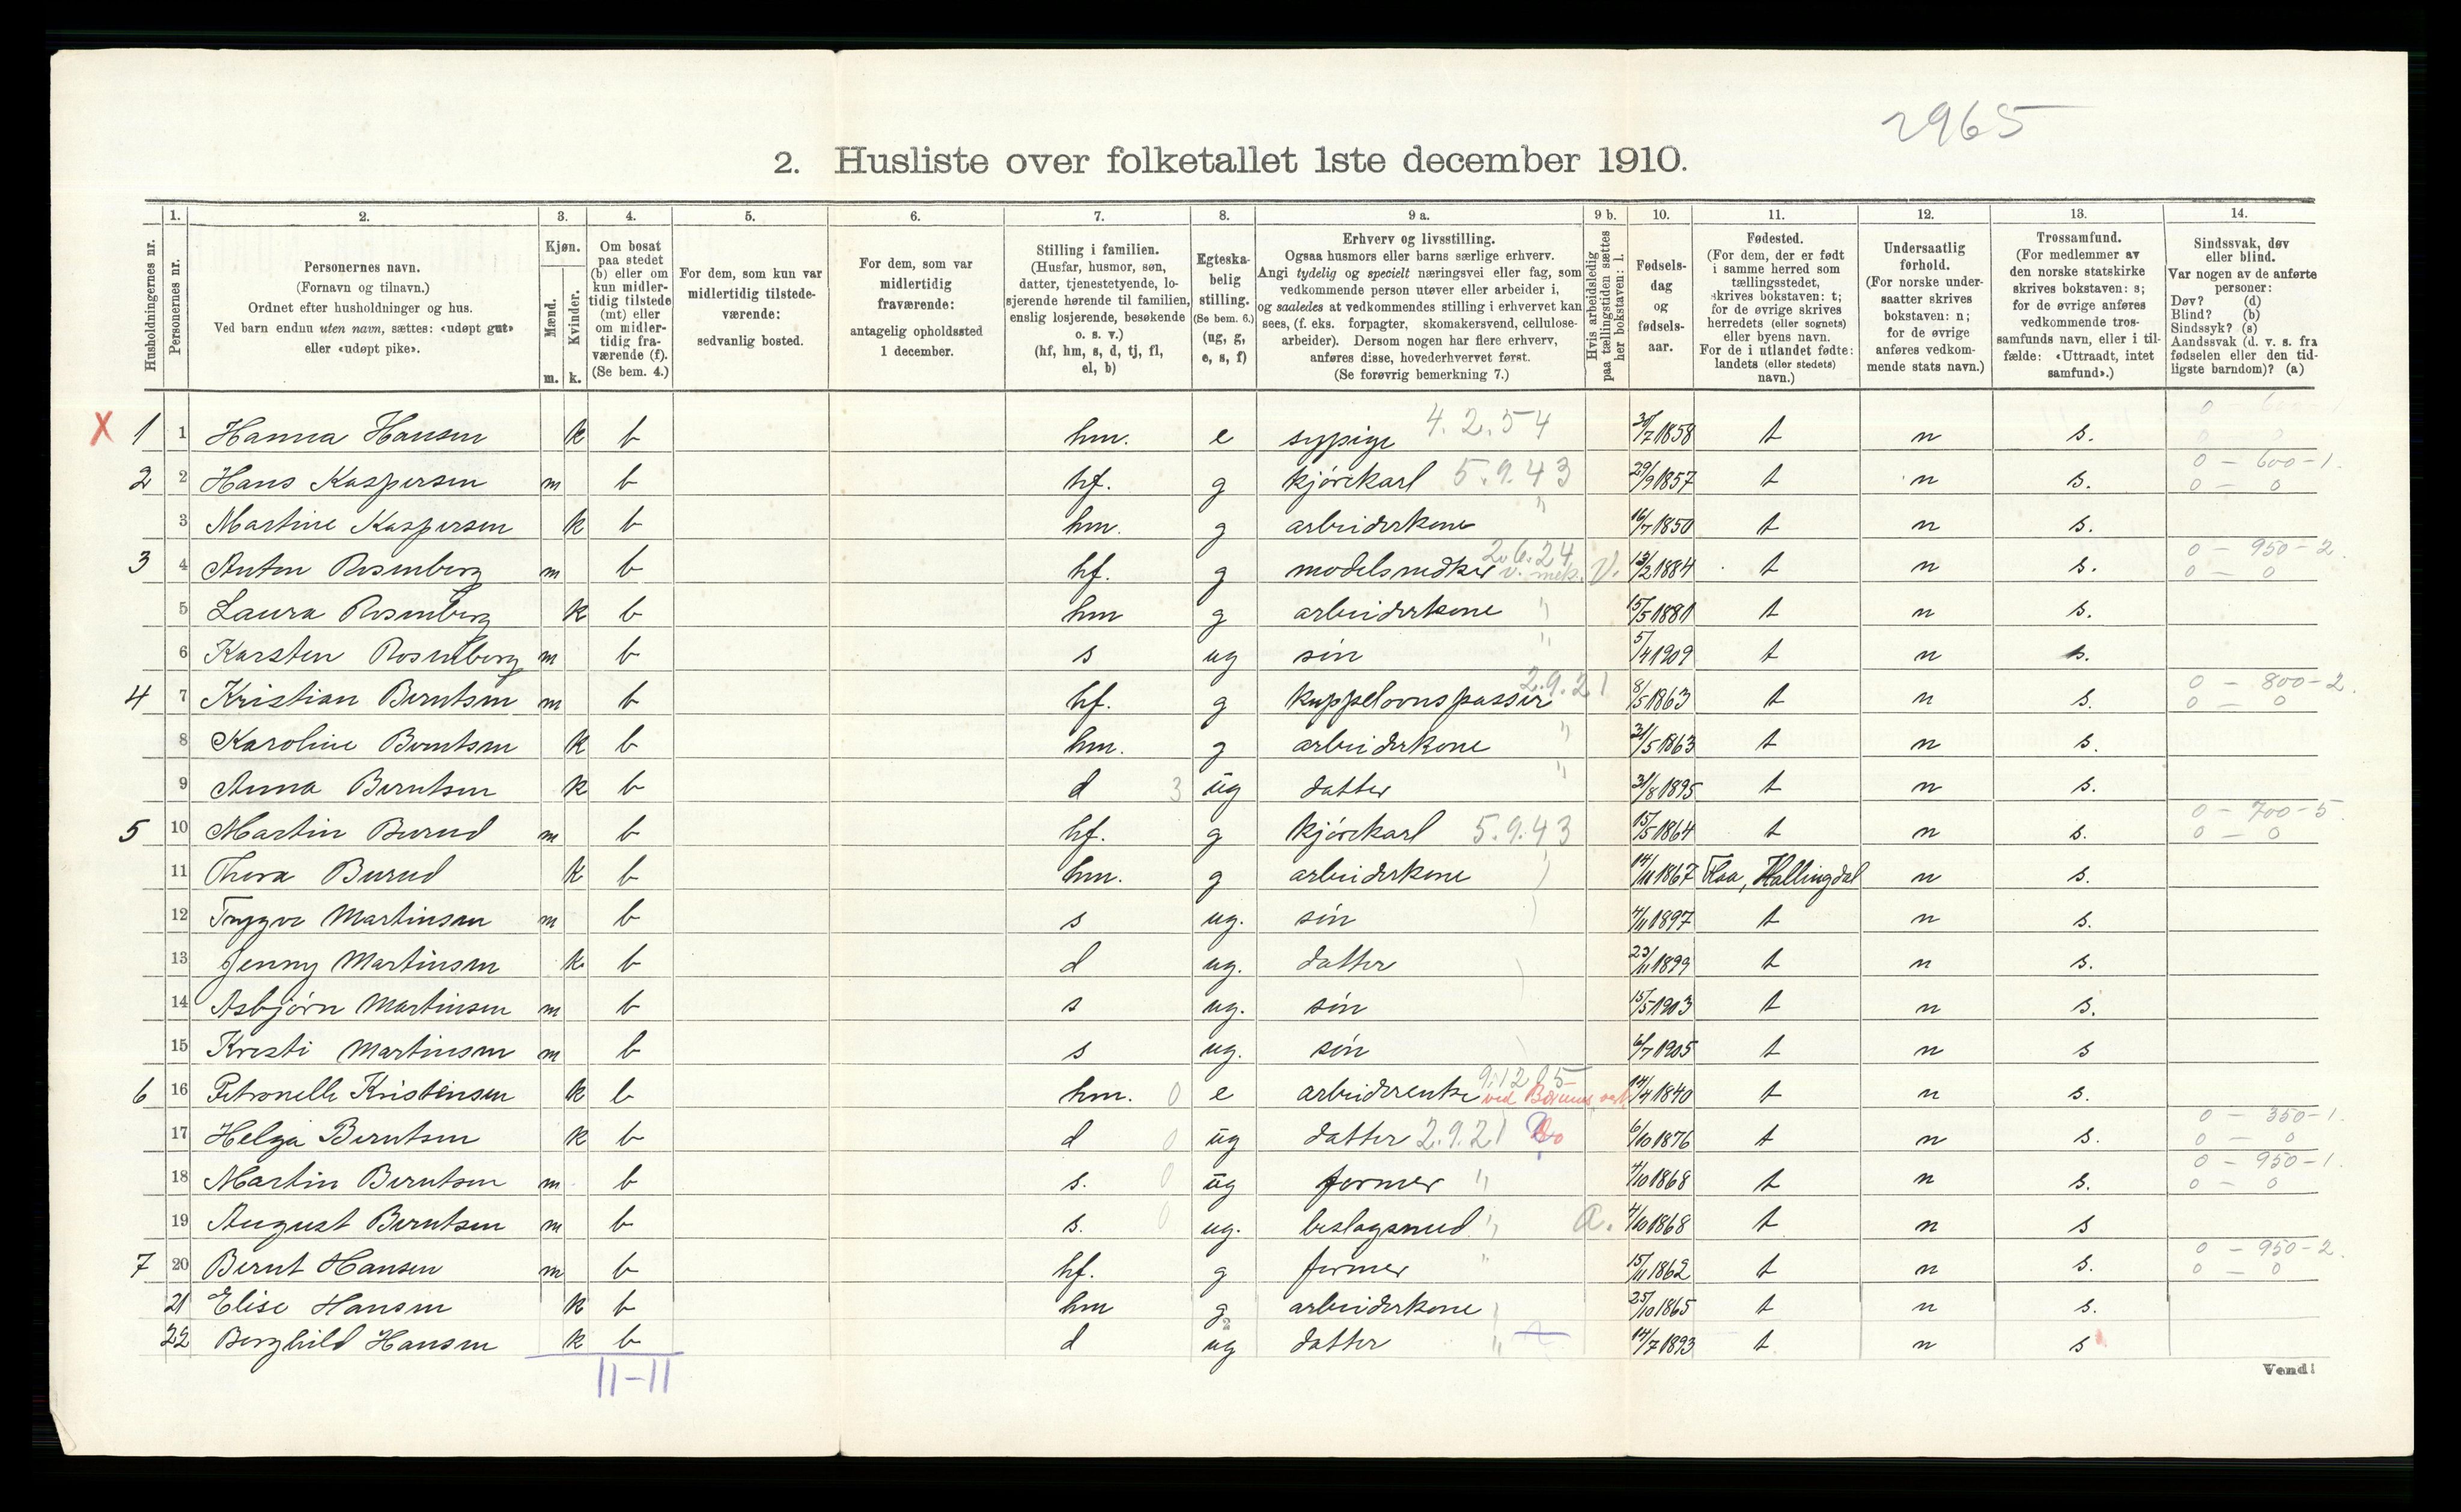 2965
2. Husliste over folketallet 1ste december 1910.
Husholdningernes nr.
1. Personernes nr.
2. Personernes navn. (Fornavn og tilnavn.) Ordnet efter husholdninger og hus. Ved barn endnu uten navn, sættes: «udøpt gut» eller «udøpt pike».
3. Kjøn. Mænd. m. Kvinder. k.
4. Om bosat paa stedet (b) eller om kun midlertidig tilstede (mt) eller om midlertidig fraværende (f). (Se bem. 4.)
5. For dem, som kun var midlertidig tilstedeværende: sedvanlig bosted.
6. For dem, som var midlertidig fraværende: antagelig opholdssted 1 december.
7. Stilling i familien. (Husfar, husmor, søn, datter, tjenestetyende, losjerende hørende til familien, enslig losjerende, besøkende o. s. v.) (hf, hm, s, d, tj, fl, el, b)
8. Egteskabelig stilling. (Se bem. 6.) (ug, g, e, s, f)
9 a. Erhverv og livsstilling. Ogsaa husmors eller barns særlige erhverv. Angi tydelig og specielt næringsvei eller fag, som vedkommende person utøver eller arbeider i, og saaledes at vedkommendes stilling i erhvervet kan sees, (f. eks. forpagter, skomakersvend, cellulosearbeider). Dersom nogen har flere erhverv, anføres disse, hovederhvervet først. (Se forøvrig bemerkning 7.)
9 b. Hvis arbeidsledig paa tællingstiden sættes her bokstaven: l.
10. Fødselsdag og fødselsaar.
11. Fødested. (For dem, der er født i samme herred som tællingsstedet, skrives bokstaven: t; for de øvrige skrives herredets (eller sognets) eller byens navn. For de i utlandet fødte: landets (eller stedets) navn.)
12. Undersaatlig forhold. (For norske undersaatter skrives bokstaven: n; for de øvrige anføres vedkommende stats navn.)
13. Trossamfund. (For medlemmer av den norske statskirke skrives bokstaven: s; for de øvrige anføres vedkommende trossamfunds navn, eller i tilfælde: «Uttraadt, intet samfund».)
14. Sindssvak, døv eller blind. Var nogen av de anførte personer: Døv? (d) Blind? (b) Sindssyk? (s) Aandssvak (d. v. s. fra fødselen eller den tidligste barndom)? (a)
X 1 1 Hanna Hansen k b hm. e sypige 4.2.54 30/7 1858 t n s.
2 2 Hans Kaspersen m b hf. g kjørekarl 5.9.43 29/9 1857 t n s. 0 – 600 – 1. 0 – 0
3 Martine Kaspersen k b hm. g arbeiderkone " 16/7 1850 t n s.
3 4 Anton Rosenberg m b hf. g modelsnedker 2.6.24 v. mek. V. 13/2 1884 t n s. 0 – 950 – 2. 0 – 0
5 Laura Rosenberg k b hm g arbeiderkone " 15/5 1881 t n s.
6 Karsten Rosenberg m b s ug søn " 5/4 1909 t n s.
4 7 Kristian Berntsen m b hf. g kuppelovnspasser 2.9.21 8/5 1863 t n s. 0 – 800 – 2. 0 – 0
8 Karoline Berntsen k b hm. g arbeiderkone " 21/5 1863 t n s.
9 Anna Berntsen k b d 3 ug datter " 31/8 1895 t n s.
5 10 Martin Burud m b hf. g kjørekarl 5.9.43 15/5 1864 t n s. 0 – 700 – 5. 0 – 0
11 Thora Burud k b hm. g arbeiderkone 14/11 1867 Flaa, Hallingdal n s.
12 Trygve Martinsen m b s ug. søn 4/11 1897 t n s.
13 Jenny Martinsen k b d ug. datter 23/11 1899 t n s.
14 Asbjørn Martinsen m b s ug. søn 15/5 1903 t n s.
15 Kristi Martinsen m b s ug. søn 6/7 1905 t n s
6 16 Petronelle Kristensen k b hm. 0 e arbeiderenke 9.12.05 ved Bærums verk 14/4 1840 t n s.
17 Helga Berntsen k b d 0 ug datter 2.9.21 6/10 1876 t n s. 0 – 350 – 1. 0 – 0
18 Martin Berntsen m b s. 0 ug former " 4/10 1868 t n s. 0 – 950 – 1. 0 – 0
19 August Berntsen m b s. 0 ug. beslagsmed " a. 4/10 1868 t n s
7 20 Bernt Hansen m b hf. g former " 15/11 1862 t n s. 0 – 950 – 2. 0 – 0
21 Elise Hansen k b hm g arbeiderkone 25/10 1865 t n s.
22 Borghild Hansen k b d ug datter " 14/7 1893 t n s
11–11
Vend!